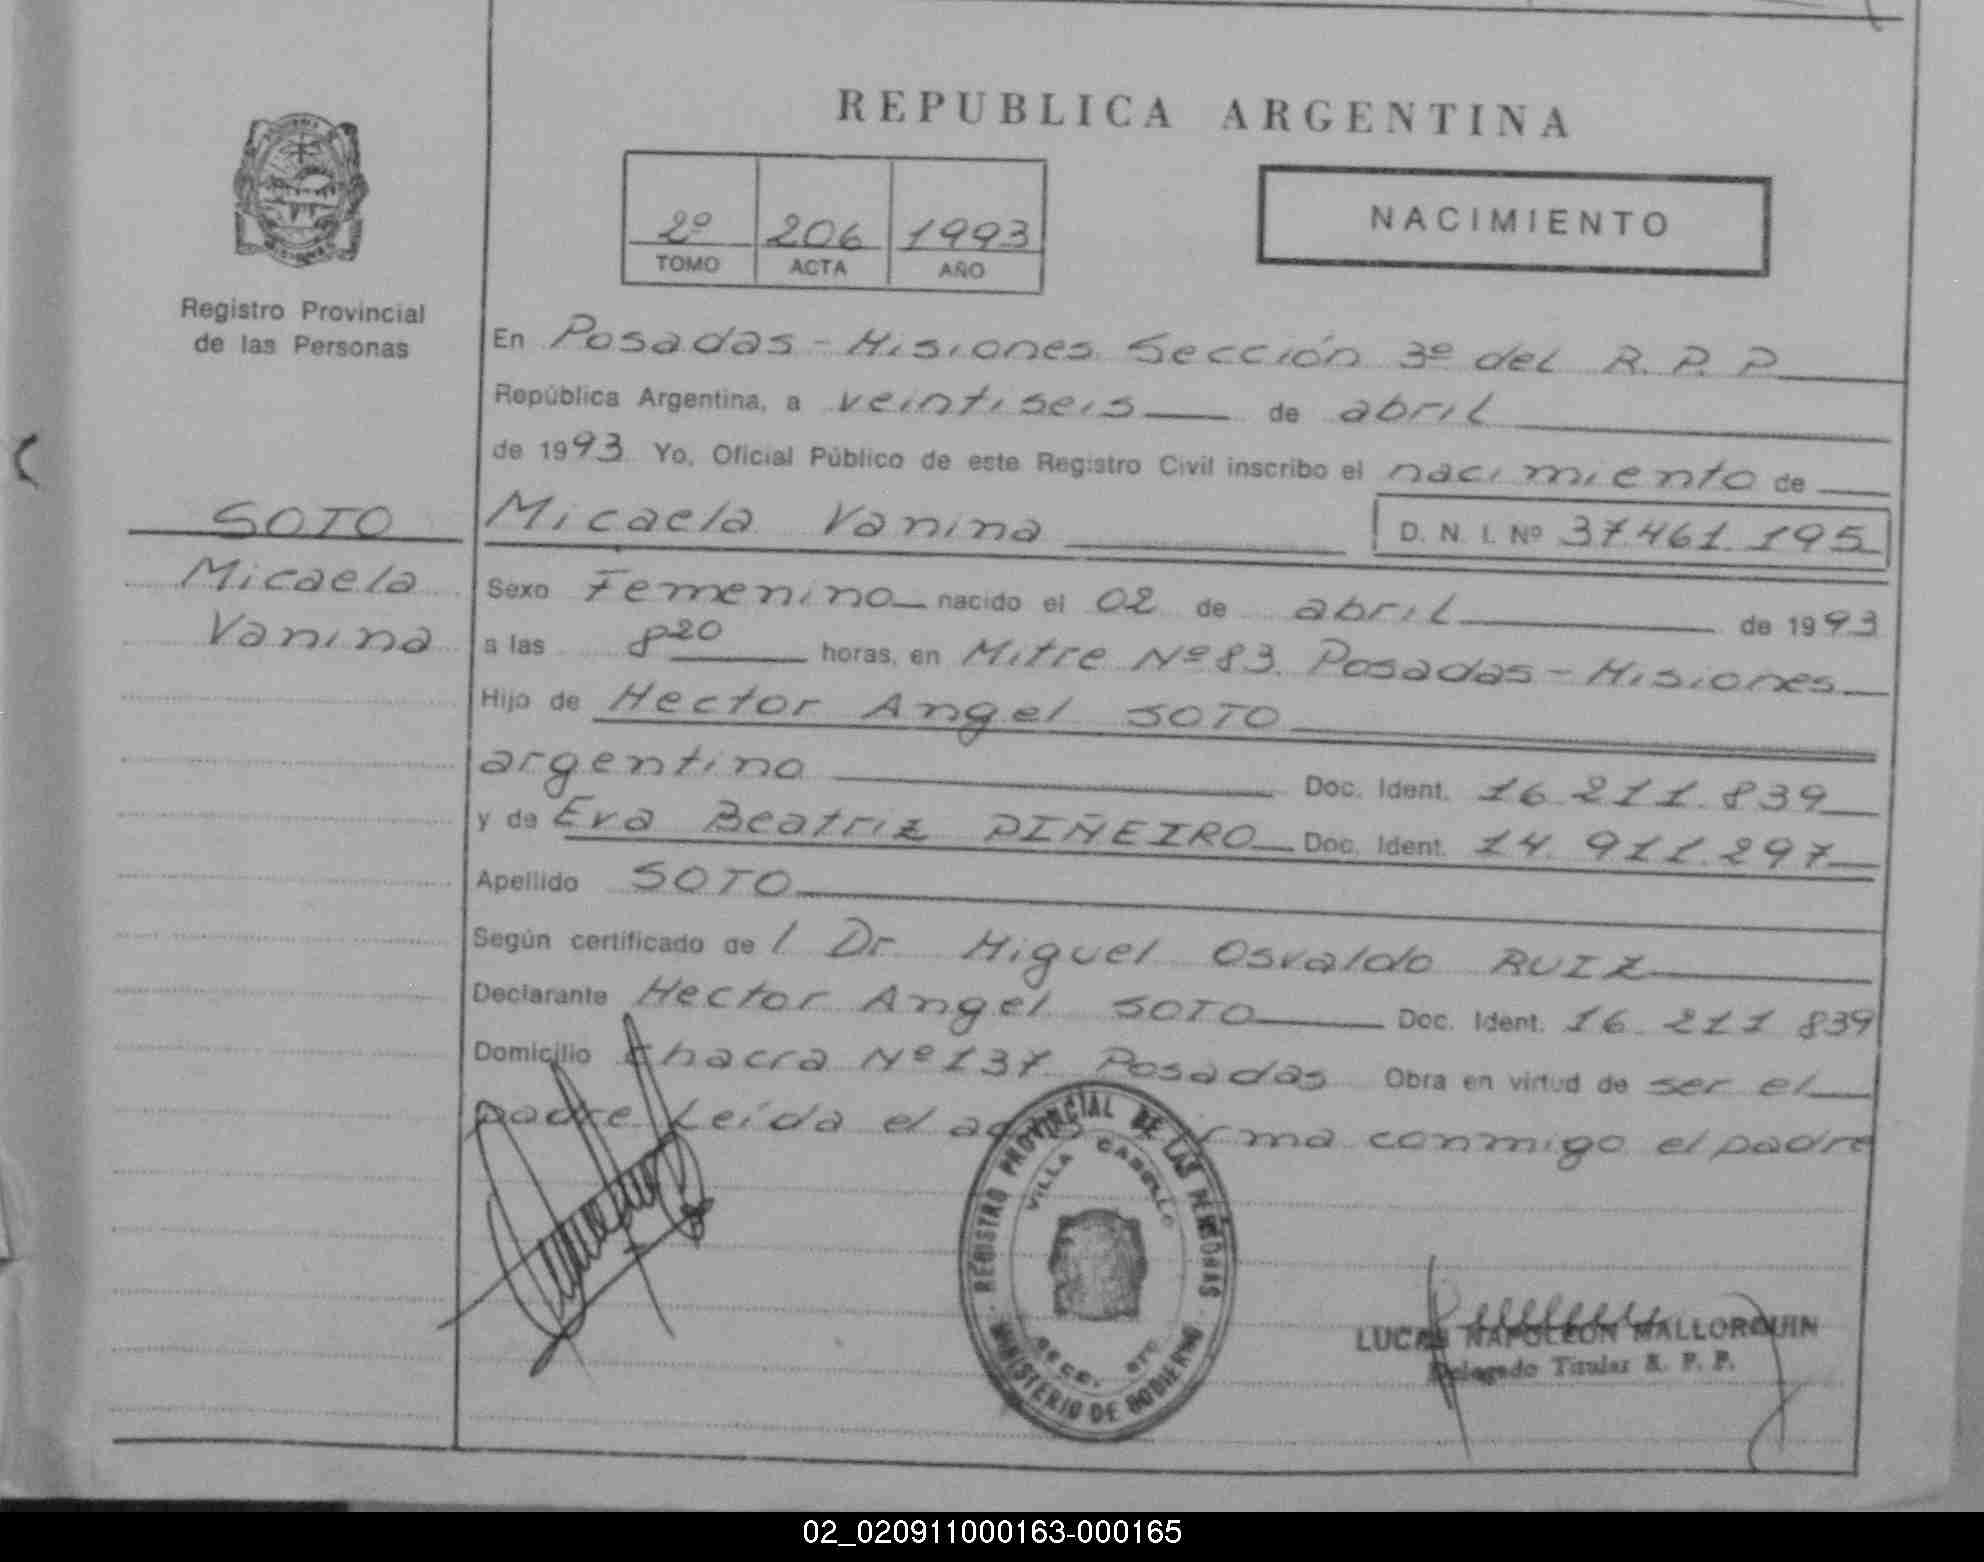 REPUBLICA ARGENTINA
2º 206 1993
TOMO ACTA AÑO
NACIMIENTO
Registro Provincial
de las Personas
SOTO
Micaela
Vanina
En Posadas - Misiones Sección 3º del R. P. P.
República Argentina, a veintiseis de abril
de 1993 Yo, Oficial Público de este Registro Civil inscribo el nacimiento de
Micaela Vanina D. N. I. Nº 37.461.195
Sexo Femenino nacido el 02 de abril de 1993
a las 8 20 horas, en Mitre Nº 83. Posadas - Misiones
Hijo de Hector Angel SOTO
argentino Doc. Ident. 16.211.839
y de Eva Beatriz PIÑEIRO Doc. Ident. 14.911.297
Apellido SOTO
Según certificado de l Dr. Miguel Osvaldo RUIZ
Declarante Hector Angel SOTO Doc. Ident. 16.211 839
Domicilio Chacra Nº 137 Posadas Obra en virtud de ser el
padre Leída el acta firma conmigo el padre
REGISTRO PROVINCIAL DE LAS PERSONAS
VILLA CABELLO
MINISTERIO DE GOBIERNO
LUCAS NAPOLEON MALLORQUIN
Delegado Titular R. P. P.
02_020911000163-000165